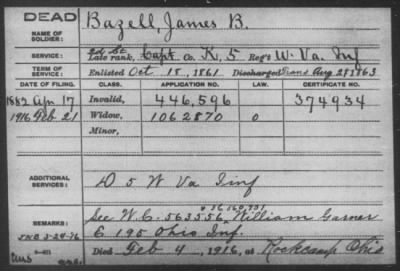 DEAD
NAME OF SOLDIER:
Bazell, James B.
SERVICE:
2d Lt
Late rank, Capt Co. K, 5 Reg't W. Va. Inf
TERM OF SERVICE:
Enlisted Oct 18, 1861 Discharged Trans Aug 28 1863
DATE OF FILING. CLASS. APPLICATION NO. LAW. CERTIFICATE NO.
1882 Apr 17 Invalid, 446,596 374934
1916 Feb 21 Widow, 1062870 0
Minor,
ADDITIONAL SERVICES:
D 5 W Va Inf
REMARKS:
See W.C. 563556, William Garner
C 195 Ohio Inf.
Died Feb 4, 1916, at Rockcamp Ohio